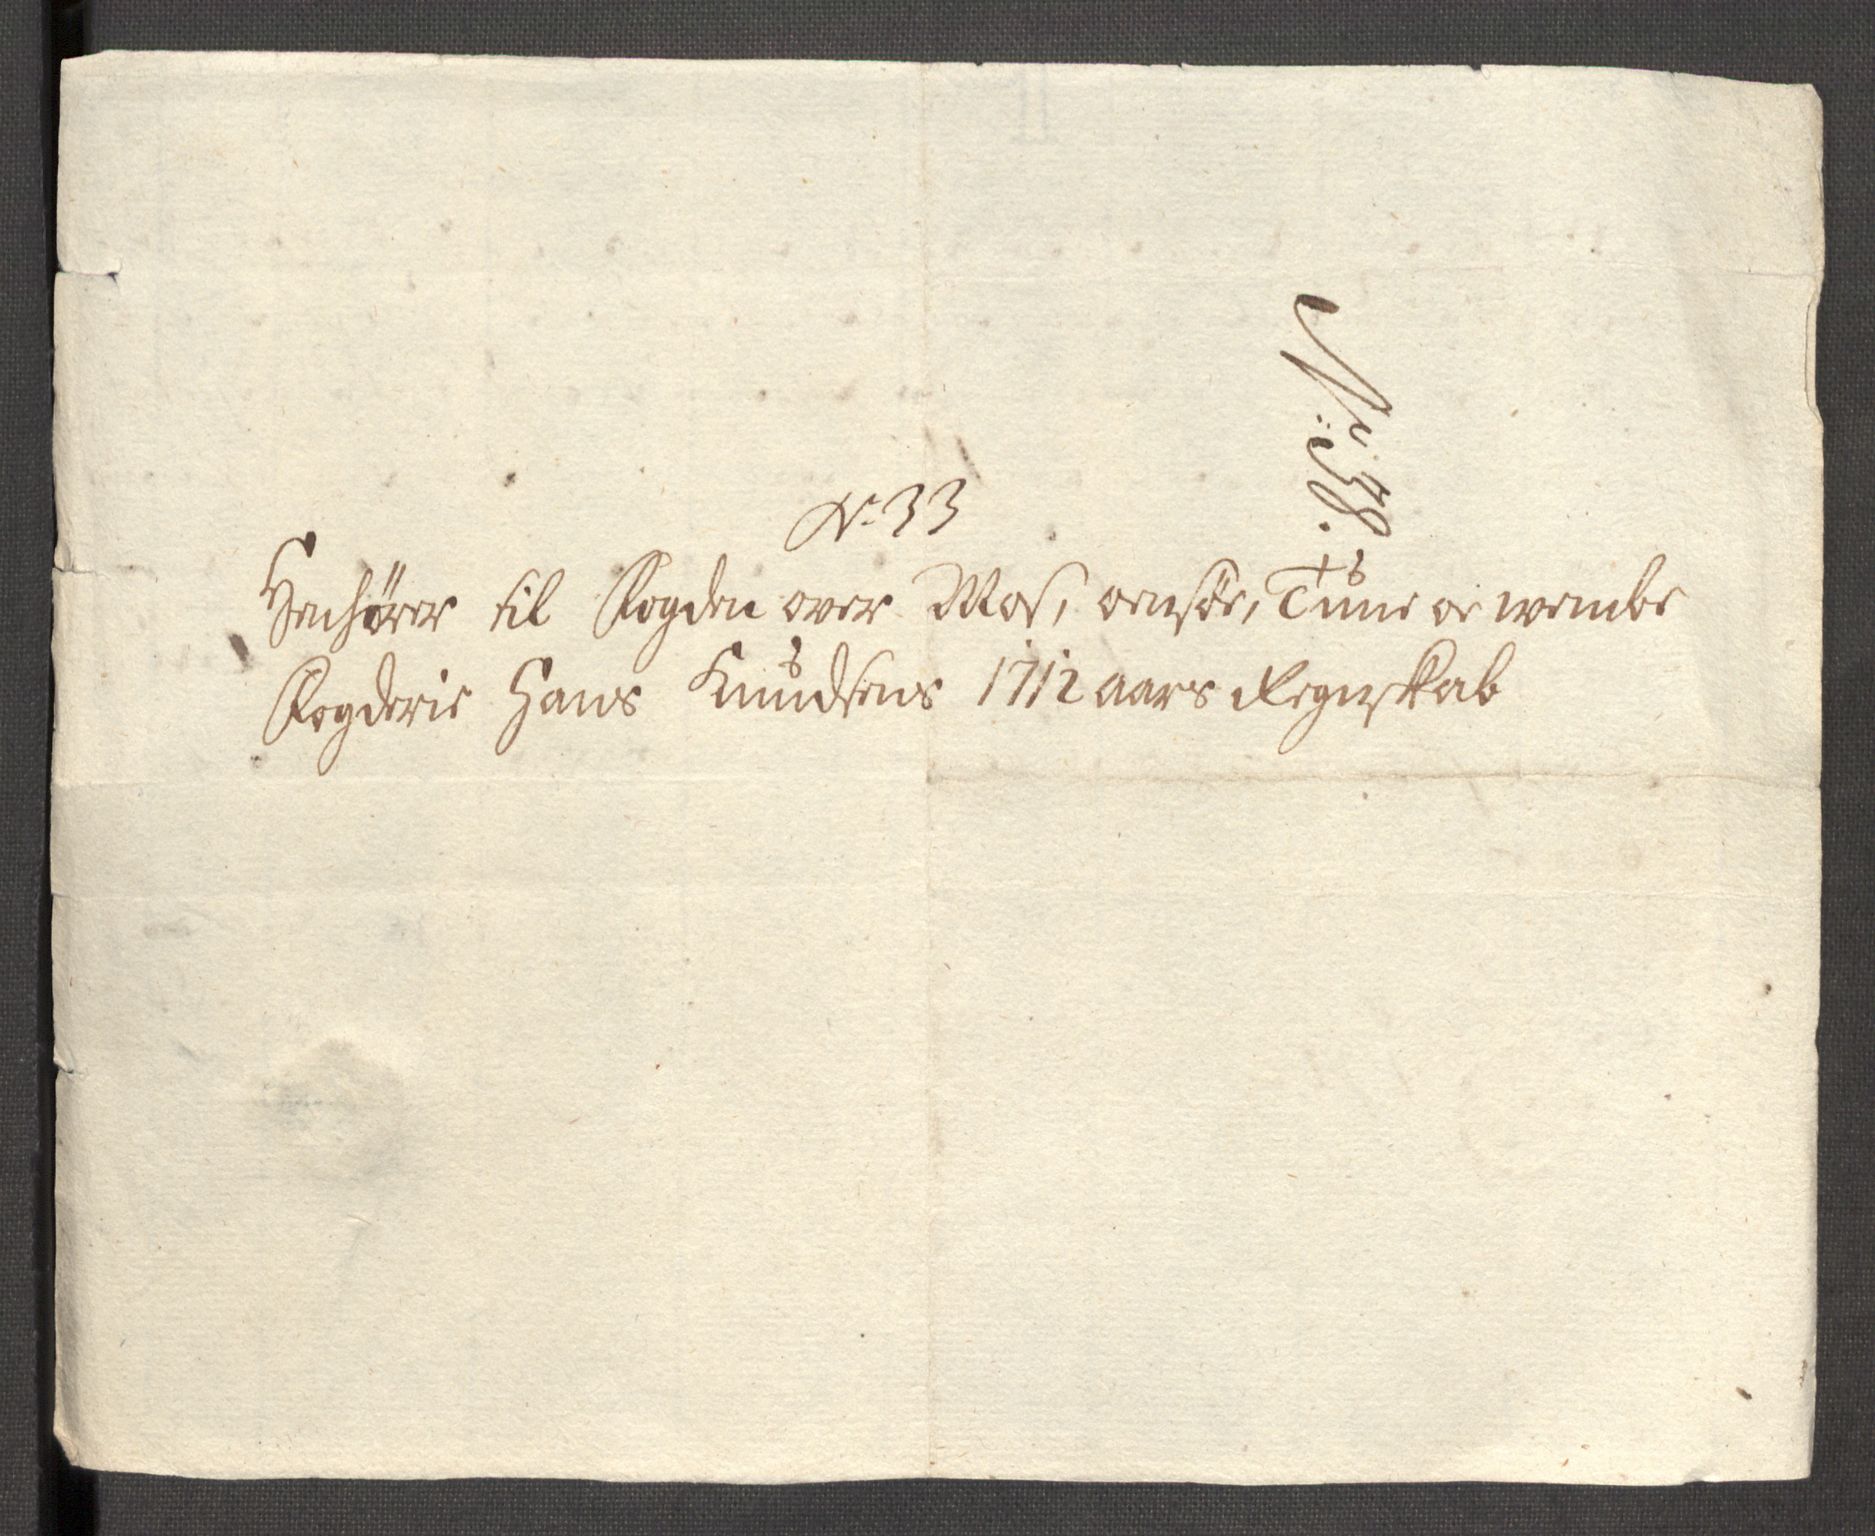 No 33
Henhører til Fogden over Mos, onsøe, Tune oc wembe
Fogderie Hans Knudsens 1712 aars Regnskab